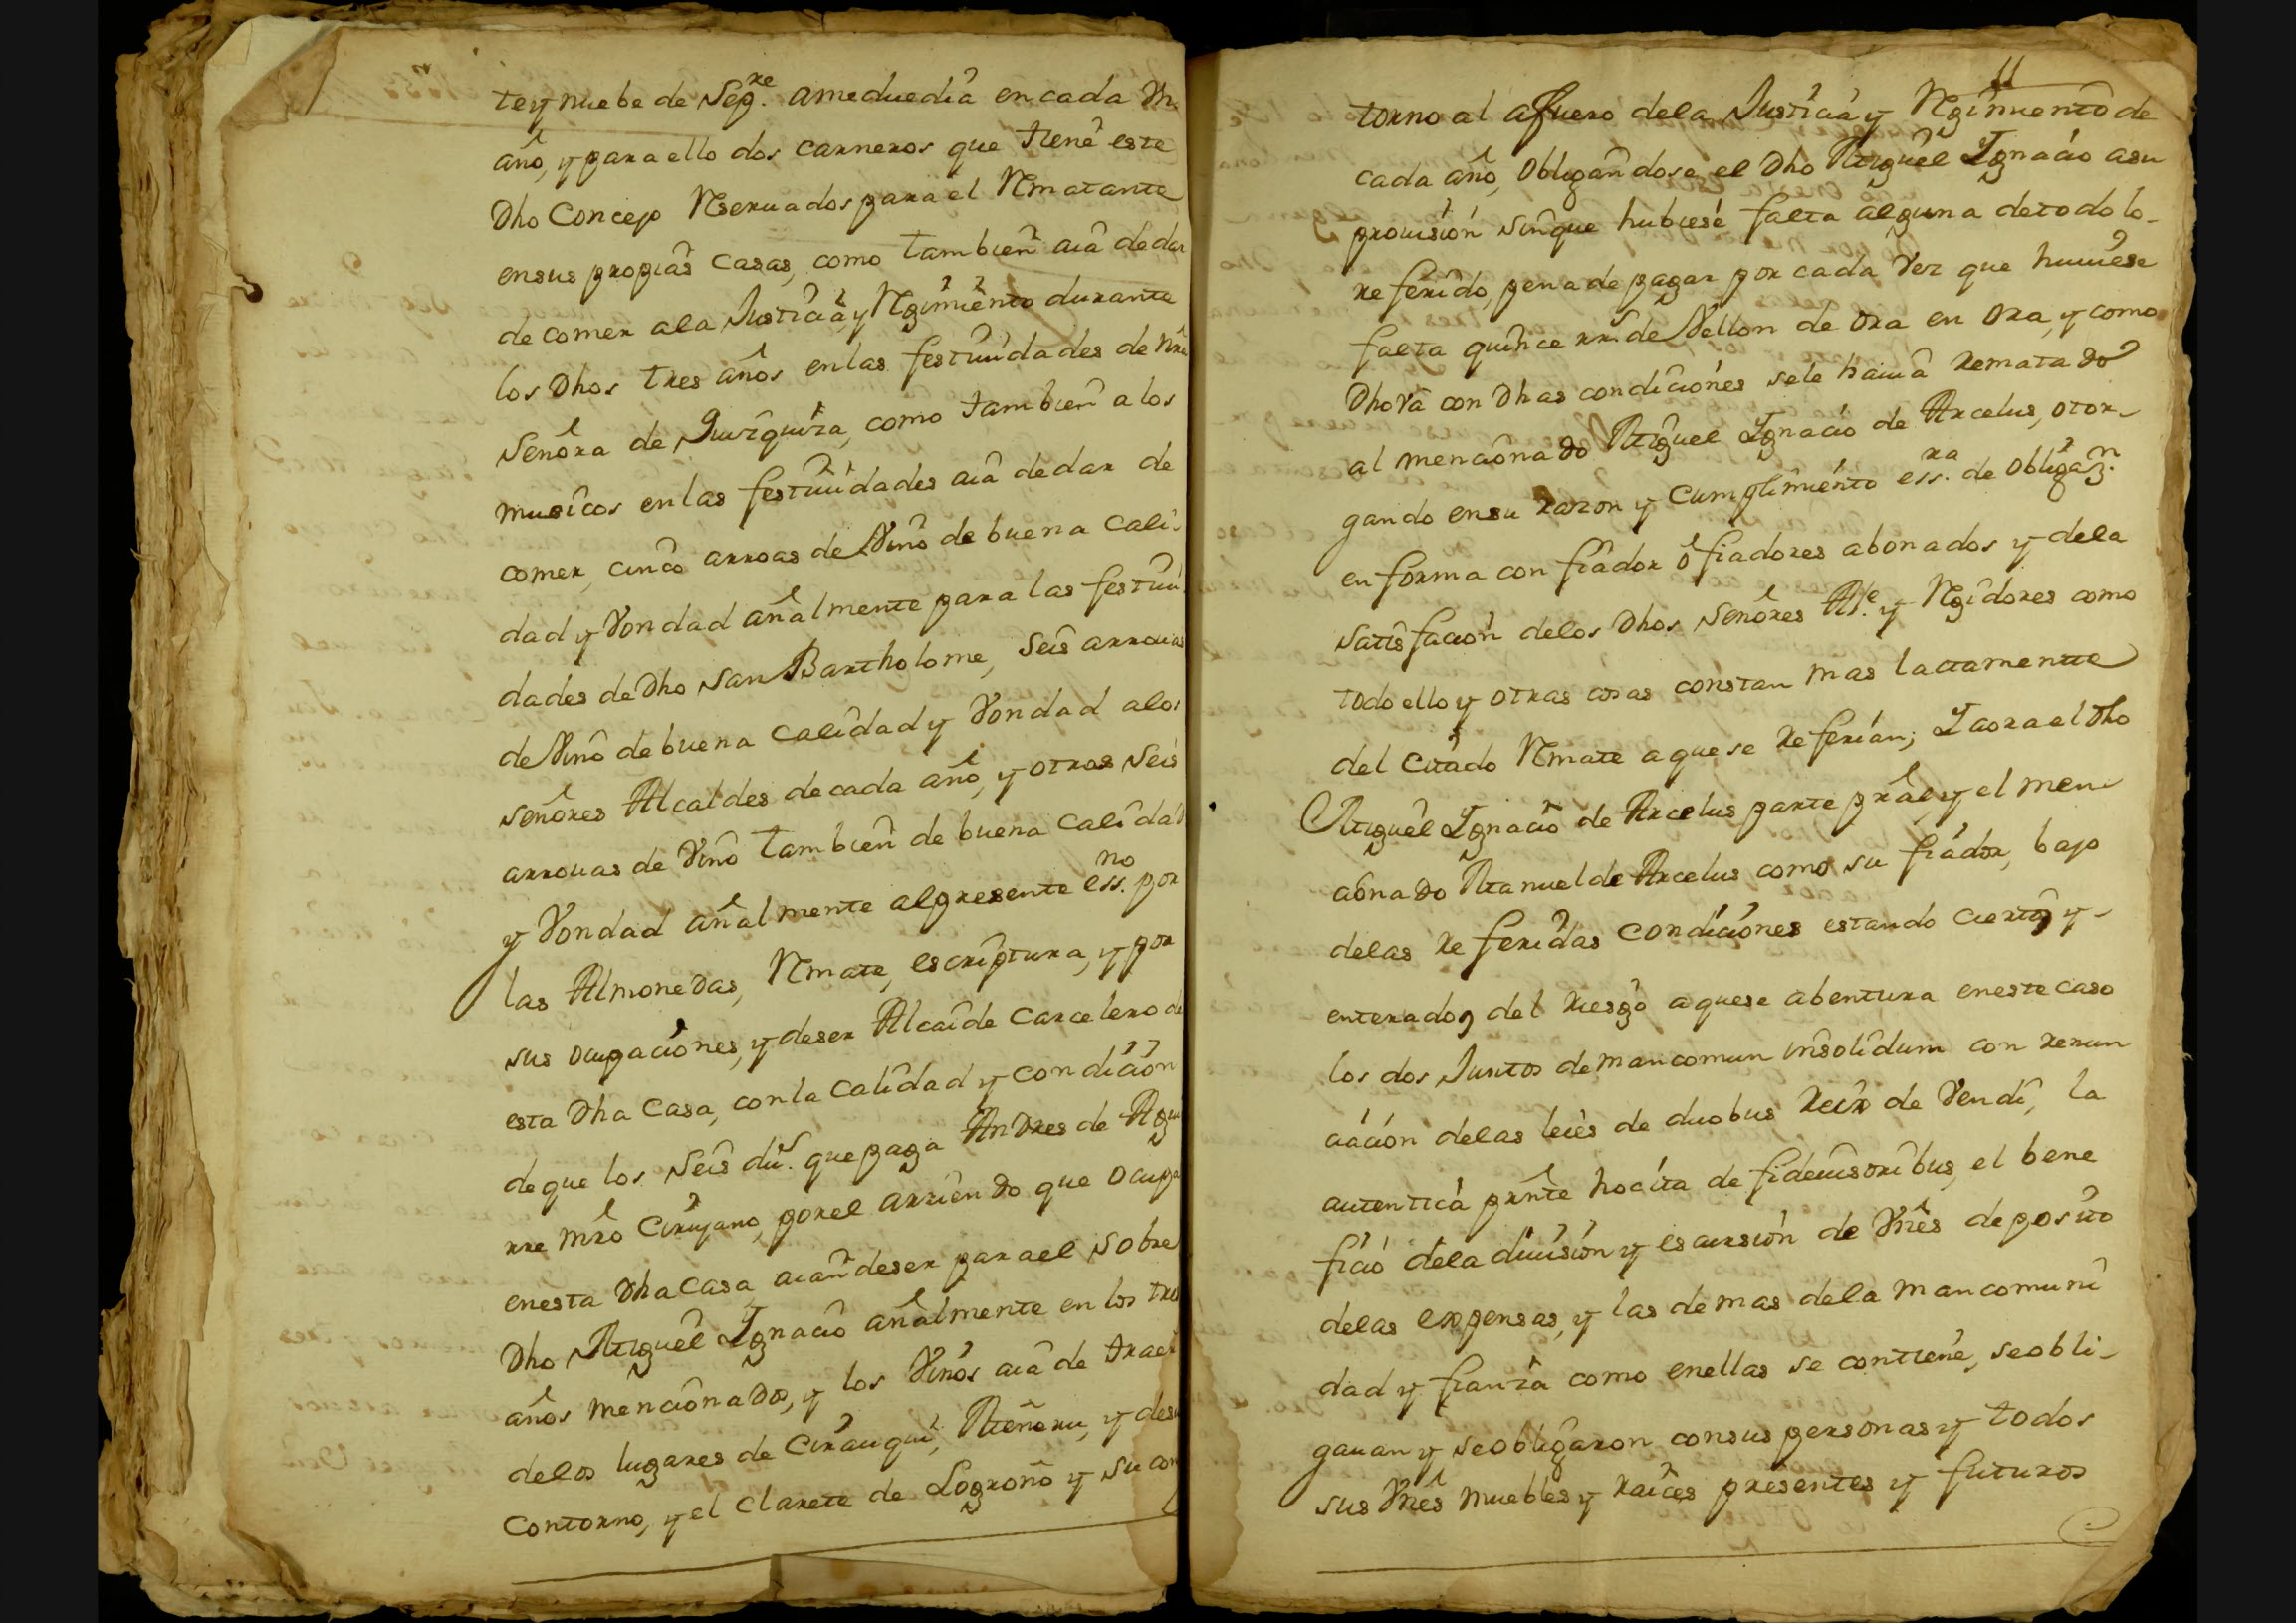 tey nuebe de Sepre. a meduedia en cada Un
año, y para ello dos carneros que tiene este
Dho Concejo Rservados para el Rmatante
en sus propias Casas, como tambien avia de dar
de comer ala Justicia, y Rgimiento durante
los Dhos tres años en las festividades de nra
Señora de Quizquiza, como tambien a los
musicos en las festividades avia de dar de
comer, cinco arroas de Vino de buena cali-
dad y Vondad añalmente para las festivi
dades de Dho San Bartholome, Seis arrouas
de Vino de buena calidad y Vondad a los
señores Alcaldes de cada año, y otros Seis
arrouas de Vino tambien de buena calidad
y Vondad añalmente al presente essno. por
las Almonedas, Rmate, escriptura, y por
sus ocupaciones, y deser Alcaide carcelero de
esta Dha Casa, con la calidad y condicion
de que los Seis dus. que paga Andres de Agui
rre mro Cirujano, por el arriendo que ocupa
en esta Dha Casa avian deser para el sobre
Dho Miguel Ignacio añalmente en los tres
años mencionados, y los Vinos avia de traer
delos lugares de Cirauqui, Mañeru, y desu
Contorno, y el clarete de Logroño y su con
11
torno al afuero dela Justicia y Rgimiento de
cada año, obligandose el Dho Miguel Ignacio asu
provision sin que hubiese falta alguna detodo lo-
referido, pena de pagar por cada Vez que huuiese
falta quince rrs. de Vellon de ora en ora, y como
Dho Va con Dhas condiciones sele hauia Rematado
al mencionado Miguel Ignacio de Arcelus, otor-
gando en su razon y Cumplimiento essra. de obligazn.
en forma con fiador ó fiadores abonados y dela
satisfacion delos Dhos Señores Alle. y Rgidores como
todo ello y otras cosas constan mas lactamentte
del citado Rmate a que se Referian; Y aora el Dho
Miguel Ignacio de Arcelus parte pral y el men
cionado Manuel de Arcelus como su fiador, bajo
delas Referidas condiciones estando ciertos y-
enterados del riesgo a quese abentura en este caso
los dos Juntos de mancomun insolidum con renun
ciacion delas leies de duobus Reix de Vendi, la
autentica prnte hocita de fideiusoribus, el bene
ficio dela diuision y escursion de Vnes deposito
delas expensas, y las demas dela mancomuni
dad y fianza como en ellas se contiene, se obli-
gauan y se obligaron con sus personas y todos
sus Vnes muebles y raices presentes y futuros